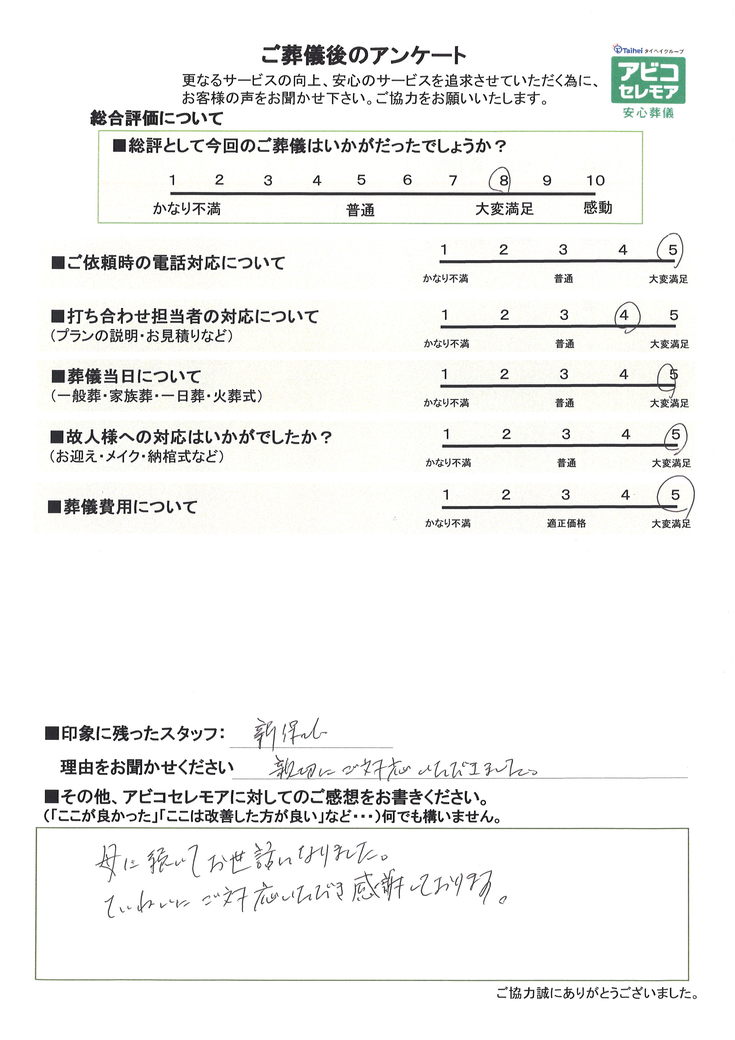 ご葬儀後のアンケート
Taihei タイヘイグループ
アビコ
セレモア
安心葬儀
更なるサービスの向上、安心のサービスを追求させていただく為に、
お客様の声をお聞かせ下さい。ご協力をお願いいたします。
総合評価について
■総評として今回のご葬儀はいかがだったでしょうか？
1 2 3 4 5 6 7 8 9 10
かなり不満 普通 大変満足 感動
■ご依頼時の電話対応について
1 2 3 4 5
かなり不満 普通 大変満足
■打ち合わせ担当者の対応について
(プランの説明・お見積りなど)
1 2 3 4 5
かなり不満 普通 大変満足
■葬儀当日について
(一般葬・家族葬・一日葬・火葬式)
1 2 3 4 5
かなり不満 普通 大変満足
■故人様への対応はいかがでしたか？
(お迎え・メイク・納棺式など)
1 2 3 4 5
かなり不満 普通 大変満足
■葬儀費用について
1 2 3 4 5
かなり不満 適正価格 大変満足
■印象に残ったスタッフ： 新保さん
理由をお聞かせください 親切にご対応いただきました。
■その他、アビコセレモアに対してのご感想をお書きください。
(「ここが良かった」「ここは改善した方が良い」など・・・)何でも構いません。
母に続いてお世話になりました。
ていねいにご対応いただき感謝しております。
ご協力誠にありがとうございました。